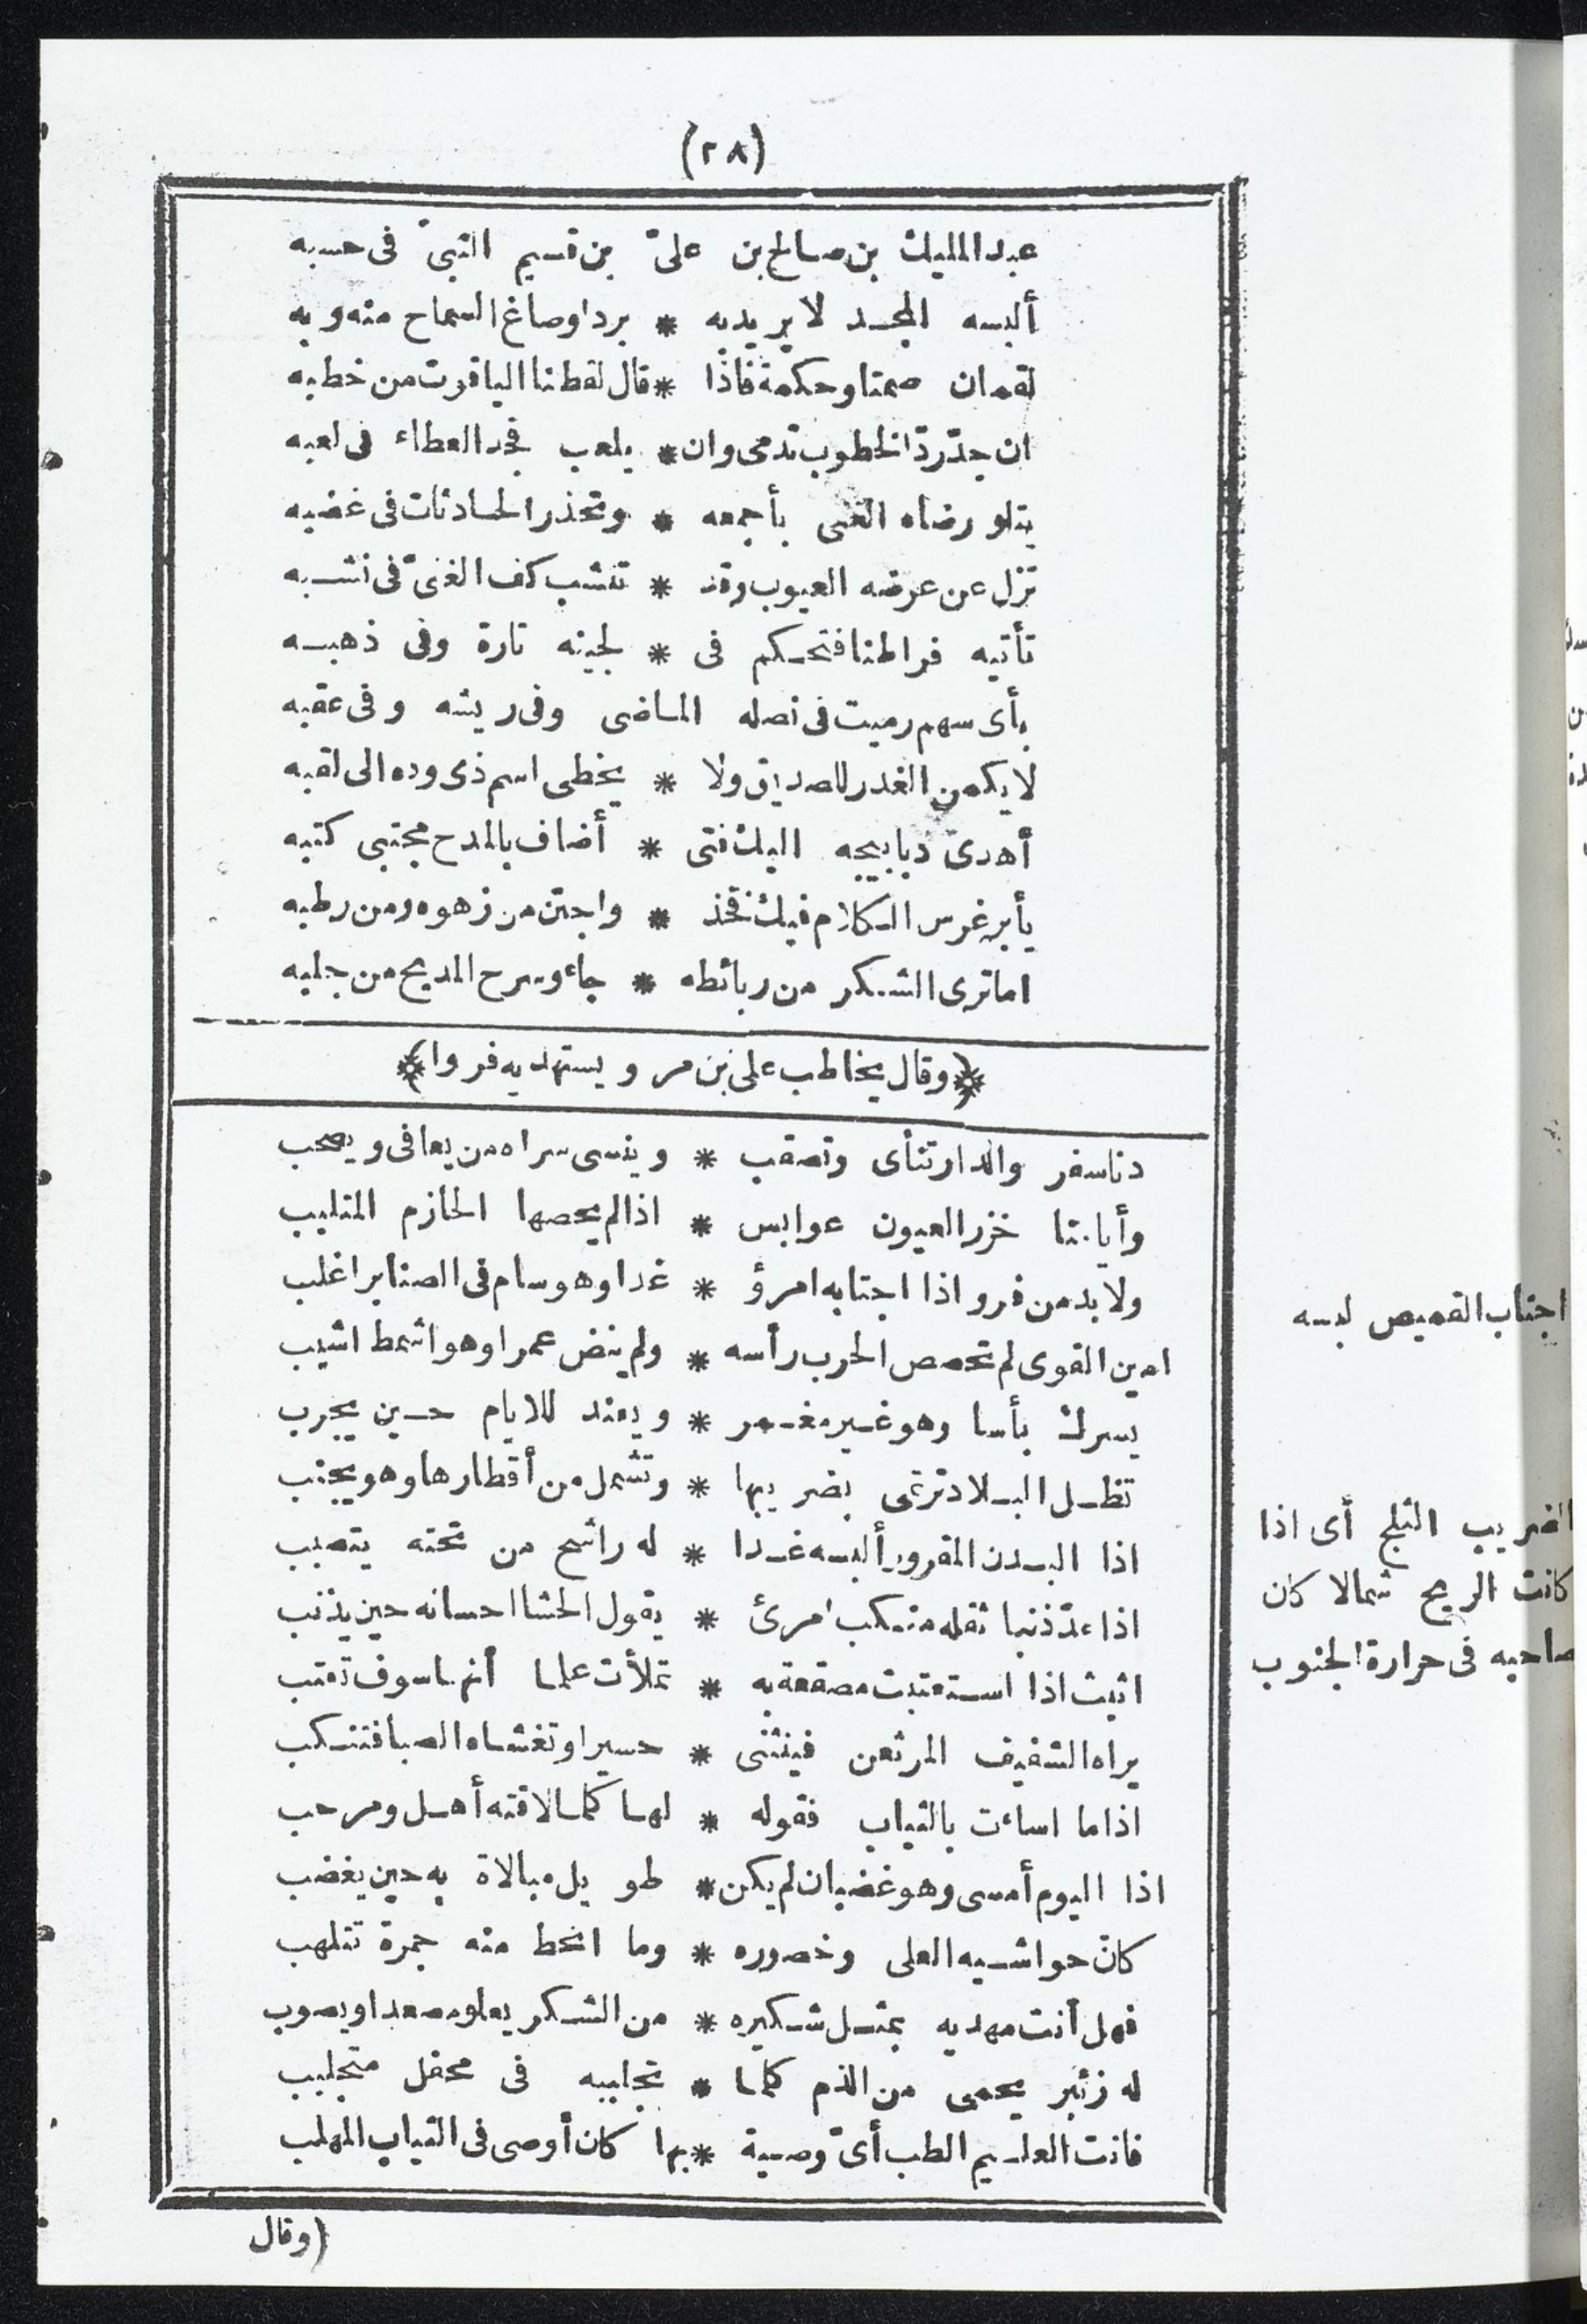 (٢٨)
عبد المليك بن صالح بن علىّ بن قسيم النبىّ فى حسبه
ألبسه المجد لا يريد به * بردا وصاغ السماح منه وبه
لقمان صمتا وحكمة فاذا * قال لقطنا الياقوت من خطبه
ان جدّ ردّ الخطوب تدمى وان * يلعب فجد العطاء فى لعبه
يتلو رضاه الغنى بأجمعه * وتحذر الحادثات فى غضبه
تزل عن عرضه العيوب وقد * تنشب كف الغنىّ فى نشبه
تأتيه فراطنا فتحكم فى * لجينه تارة وفى ذهبه
بأى سهم رميت فى نصله الماضى وفى ريشه وفى عقبه
لا يكمن الغدر للصديق ولا * يخطى اسم ذى وده الى لقبه
أهدى دبابيجه اليك فتى * أضاف بالمدح مجتبى كتبه
يأبر غرس الكلام فيك فخذ * واجتن من زهوه ومن رطبه
اما ترى الشكر من ربائطه * جاء وسرح المديح من جلبه
﴿وقال يخاطب على بن مر ويستهديه فروا﴾
دنا سفر والدار تنأى وتصقب * وينسى سراه من يعافى ويصحب
وأيامنا خزر العيون عوابس * اذا لم يحصها الحازم المتلبب
ولا بد من فرو اذا اجتابه امرؤ * غدا وهو سام فى الصنابر اغلب
امين القوى لم تحصص الحرب رأسه * ولم ينض عمرا وهو اشمط اشيب
يسرك بأسا وهو غير مغمر * ويعتد للايام حين يجرب
تظل البلاد ترتمى بضريبها * وتشمل من أقطارها وهو يجنب
اذا البدن المقرور ألبسه غدا * له راشح من تحته يتصبب
اذا عدّ ذنبا ثقله منكب امرئ * يقول الحشا احسانه حين يذنب
اثيث اذا استعتبت مصقعة به * تملأت علما أنها سوف تعتب
يراه الشفيف المرثعن فينثنى * حسيرا وتغشاه الصبا فتنكب
اذا ما اساءت بالثياب فقوله * لها كلما لاقته أهل ومرحب
اذا اليوم أمسى وهو غضبان لم يكن * طويل مبالاة به حين يغضب
كانّ حواشيه العلى وخصوره * وما انحط منه جمرة تتلهب
فهل أنت مهديه بمثل شكيره * من الشكر يعلو مصعدا ويصوب
له زئبر يحمى من الذم كلما * تجلببه فى محفل متجلبب
فانت العليم الطب أىّ وصية * بها كان أوصى فى الثياب المهلب
(وقال
اجتاب القميص لبسه
الضريب الثلج أى اذا
كانت الريح شمالا كان
صاحبه فى حرارة الجنوب